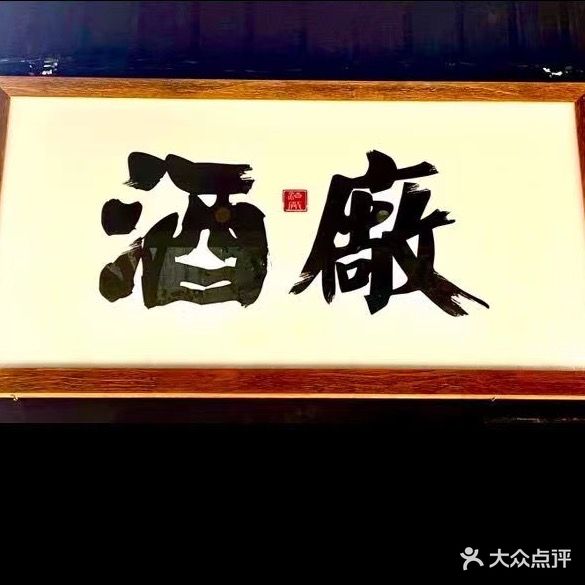 酒廠
大众点评